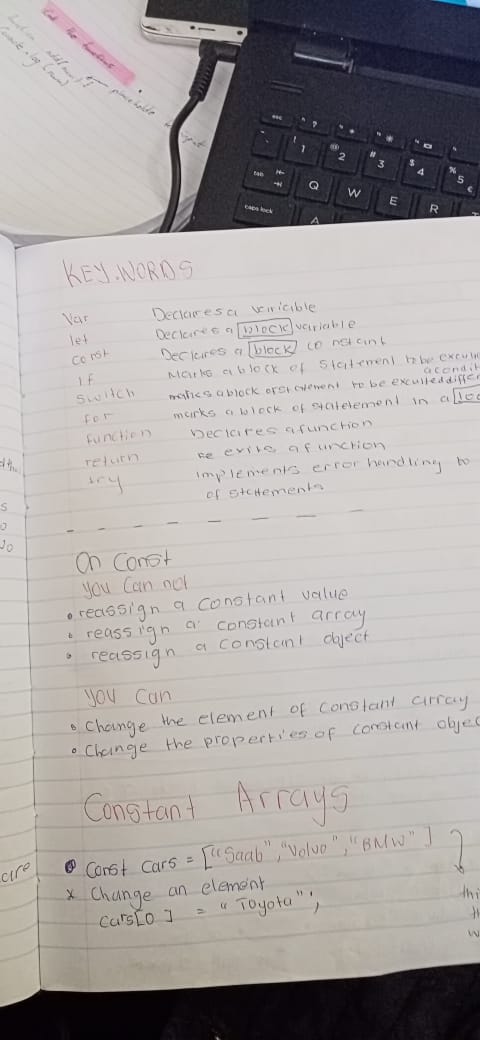 KEY.WORDS
Var Declares a varicible
let Declares a block variable
const Declares a block constant
If Marks a block of statement to be
Switch marks a block of statement to be
for marks a block of statelement in a
function Declares a function
return exits a function
try Implements error handling to
of statements
On Const
you Can not
• reassign a constant value
• reassign a constant array
• reassign a constant object
you Can
• Change the element of constant array
• Change the properties of constant
Constant Arrays
• Const Cars = ["Saab", "Volvo", "BMW"]
x Change an element
Cars[0] = "Toyota";
esc
! 1
@ 2
# 3
$ 4
% 5 €
tab
Q W E R
caps lock
A